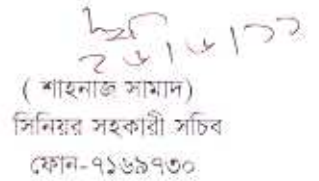 ২৬।৬।১১
( শাহনাজ সামাদ)
সিনিয়র সহকারী সচিব
ফোন-৭১৬৯৭৩০